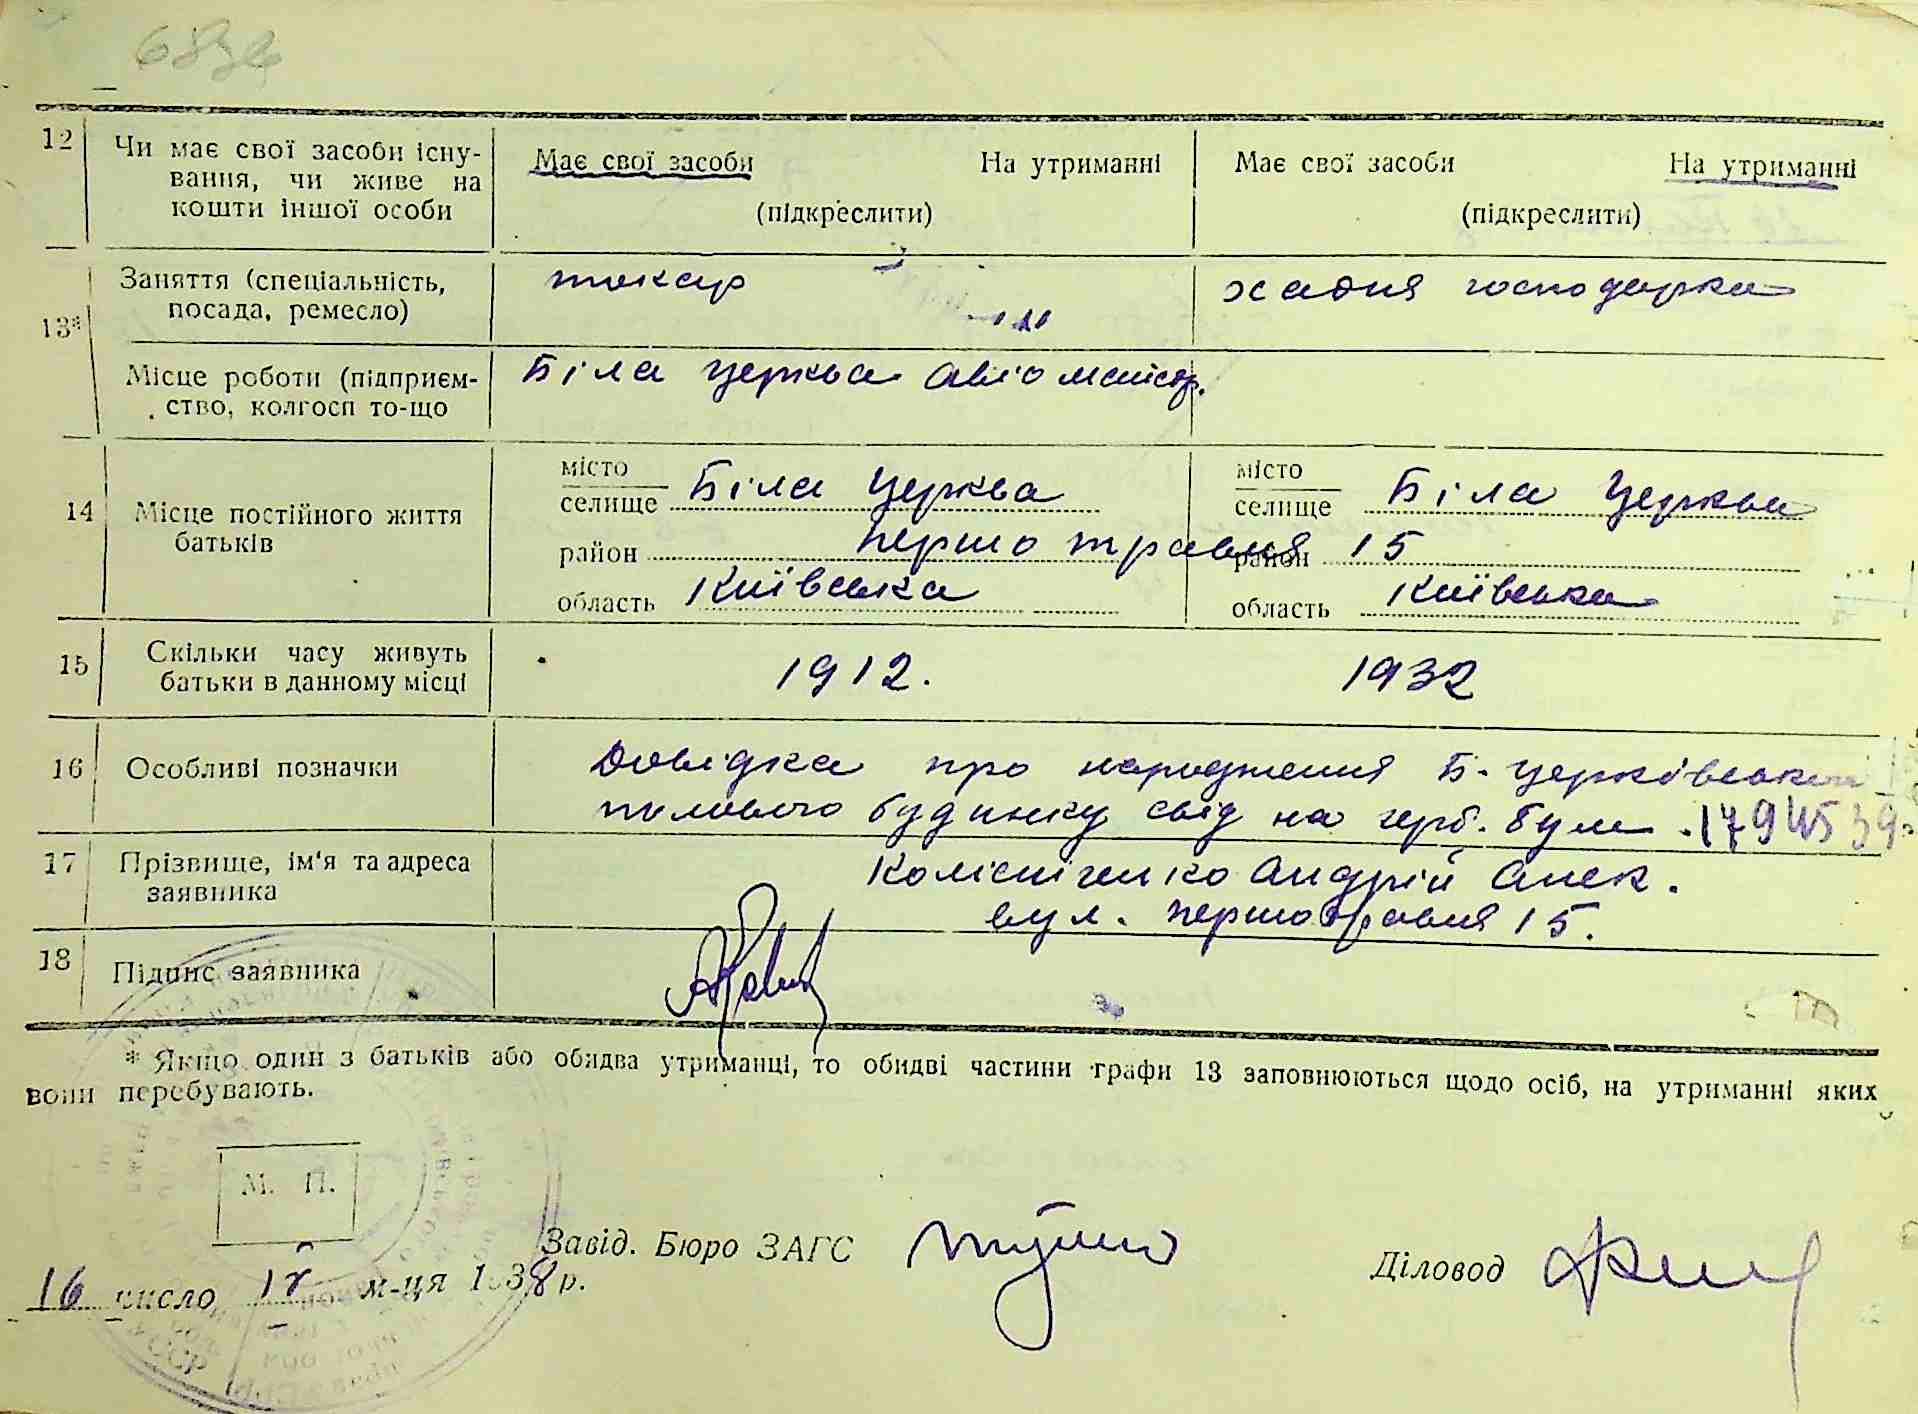 12 Чи має свої засоби існу-
вання, чи живе на
кошти іншої особи
Має свої засоби На утриманні
(підкреслити)
Має свої засоби На утриманні
(підкреслити)
13*
Заняття (спеціальність,
посада, ремесло)
токар
хатня господарка
Місце роботи (підприєм-
ство, колгосп то-що
Біла Церква
14 Місце постійного життя
батьків
місто
селище Біла Церква
район Першо травня 15
область Київська
місто
селище Біла Церква
район
область Київська
15 Скільки часу живуть
батьки в данному місці
1912.
1932
16 Особливі позначки
Довідка про народження Б-Церківськ
будинку свід на герб. бум
17 Прізвище, ім'я та адреса
заявника
Андрій Алек.
вул. Першотравня 15.
18 Підпис заявника
* Якщо один з батьків або обидва утриманці, то обидві частини графи 13 заповнюються щодо осіб, на утриманні яких
вони перебувають.
М. П.
Завід. Бюро ЗАГС
Діловод
16 число м-ця 1938 р.